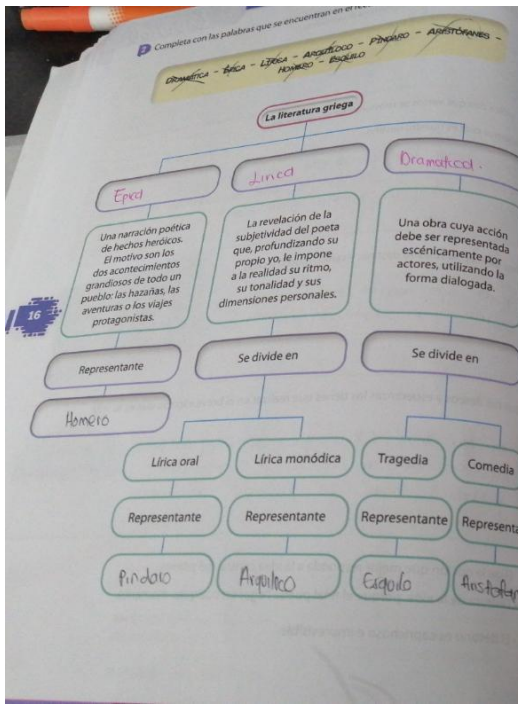 2 Completa con las palabras que se encuentran en el
DRAMÁTICA - ÉPICA - LÍRICA - ARQUÍLOCO - PÍNDARO - ARISTÓFANES -
HOMERO - ESQUILO
La literatura griega
Epica
Lirica
Dramatica.
Una narración poética
de hechos heróicos.
El motivo son los
dos acontecimientos
grandiosos de todo un
pueblo: las hazañas, las
aventuras o los viajes
protagonistas.
La revelación de la
subjetividad del poeta
que, profundizando su
propio yo, le impone
a la realidad su ritmo,
su tonalidad y sus
dimensiones personales.
Una obra cuya acción
debe ser representada
escénicamente por
actores, utilizando la
forma dialogada.
16
Representante
Se divide en
Se divide en
Homero
Lírica oral
Lírica monódica
Tragedia
Comedia
Representante
Representante
Representante
Representa
Pindaro
Arquiloco
Esquilo
Aristofan